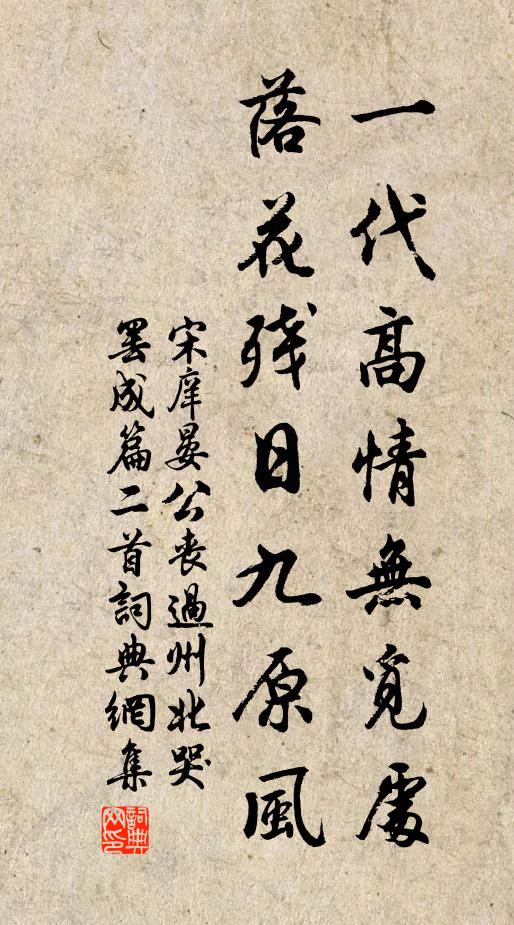 一代高情無覓處
落花殘日九原風
宋庠晏公喪過州北哭
罷成篇二首詞典網集
詞典網印